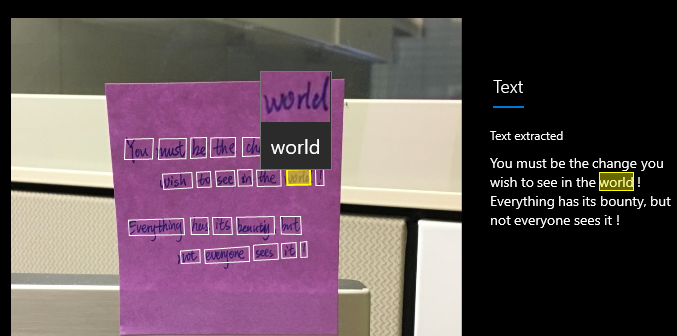 world
world
You must be the
wish to see in the world !
Everything has its beauty but
not everyone sees it !
Text
Text extracted
You must be the change you
wish to see in the world !
Everything has its bounty, but
not everyone sees it !